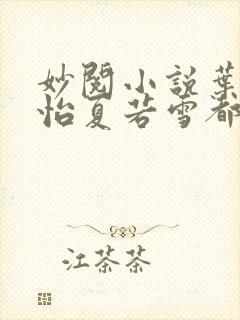 妙阅小説葉
怡夏若雪都
江茶茶